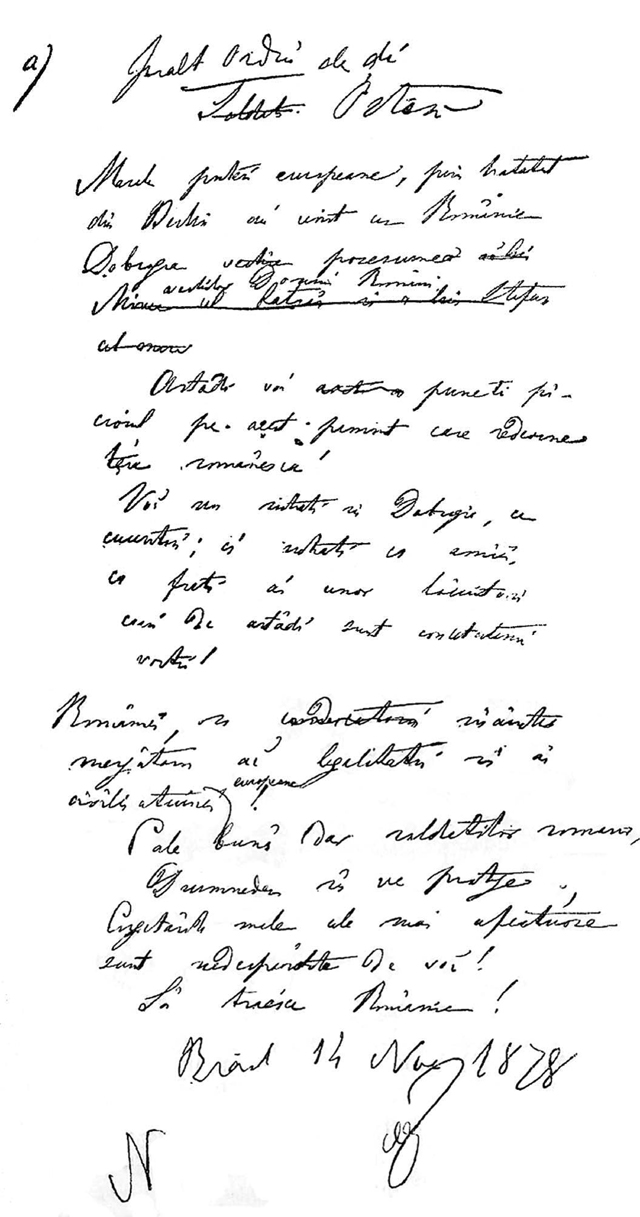 a) Înalt Ordin de di
Soldati. Ostași
Marile puteri europene, prin tratatul
din Berlin au unit cu România
Dobrogea vechia posesiune a
Mircea cel Bătrân și a lui Ștefan
vechilor Domni Români.
cel mare
Astădi voi puneti pi-
ciorul pe acest pămînt care redevine
țéra românésca!
Voi nu intrati in Dobrogia, ca
cuceritori; ci intrati ca amici,
ca frati ai unor locuitori
cari de astădi sunt concetateni
vostri!
Românii, inainte
mergětori ai legalitatei si ai
civilisatiunei europene!
Cale bună dar soldatilor romani,
Dumnedeu să ve protége,
Cugetările mele cele mai afectuóse
sunt nedespărtite de voi!
Să traésca România!
Brăila 14 Noem 1878
N